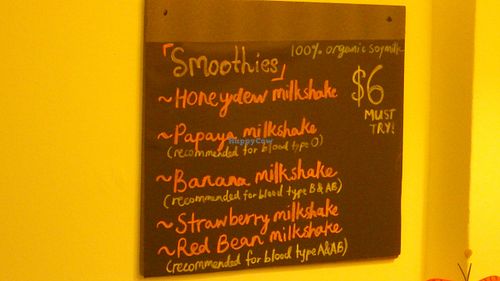 「Smoothies」
100% organic soymilk
$6
MUST
TRY!
~Honeydew milkshake
~Papaya milkshake
(recommended for blood type O)
~Banana milkshake
(recommended for blood type B & AB)
~Strawberry milkshake
~Red Bean milkshake
(recommended for blood type A&AB)
HappyCow